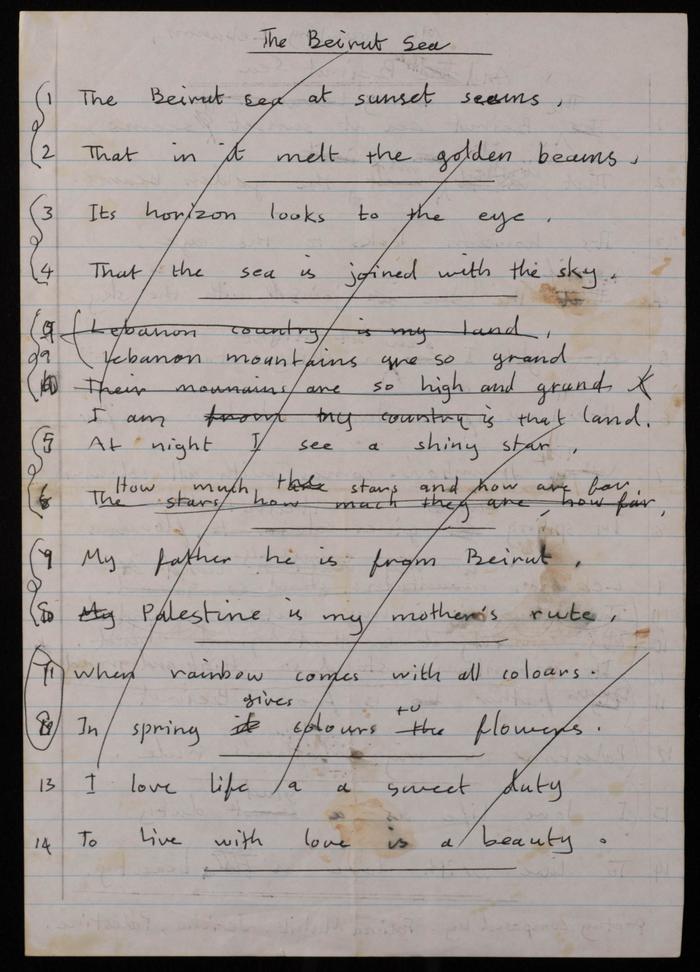 The Beirut Sea
1 The Beirut sea at sunset seems,
2 That in it melt the golden beams,
3 Its horizon looks to the eye.
4 That the sea is joined with the sky.
Lebanon country is my land,
9 Lebanon mountains are so grand
10 Their mounains are so high and grand X
I am from my country is that land.
5 At night I see a shiny star,
How much the stars and how are far
6 The stars how much they are, how far,
9 My father he is from Beirut,
10 My Palestine is my mother's rute,
11 when rainbow comes with all colours.
gives to
In spring it colours the flowers.
13 I love life a a sweet duty
14 To live with love is a beauty.